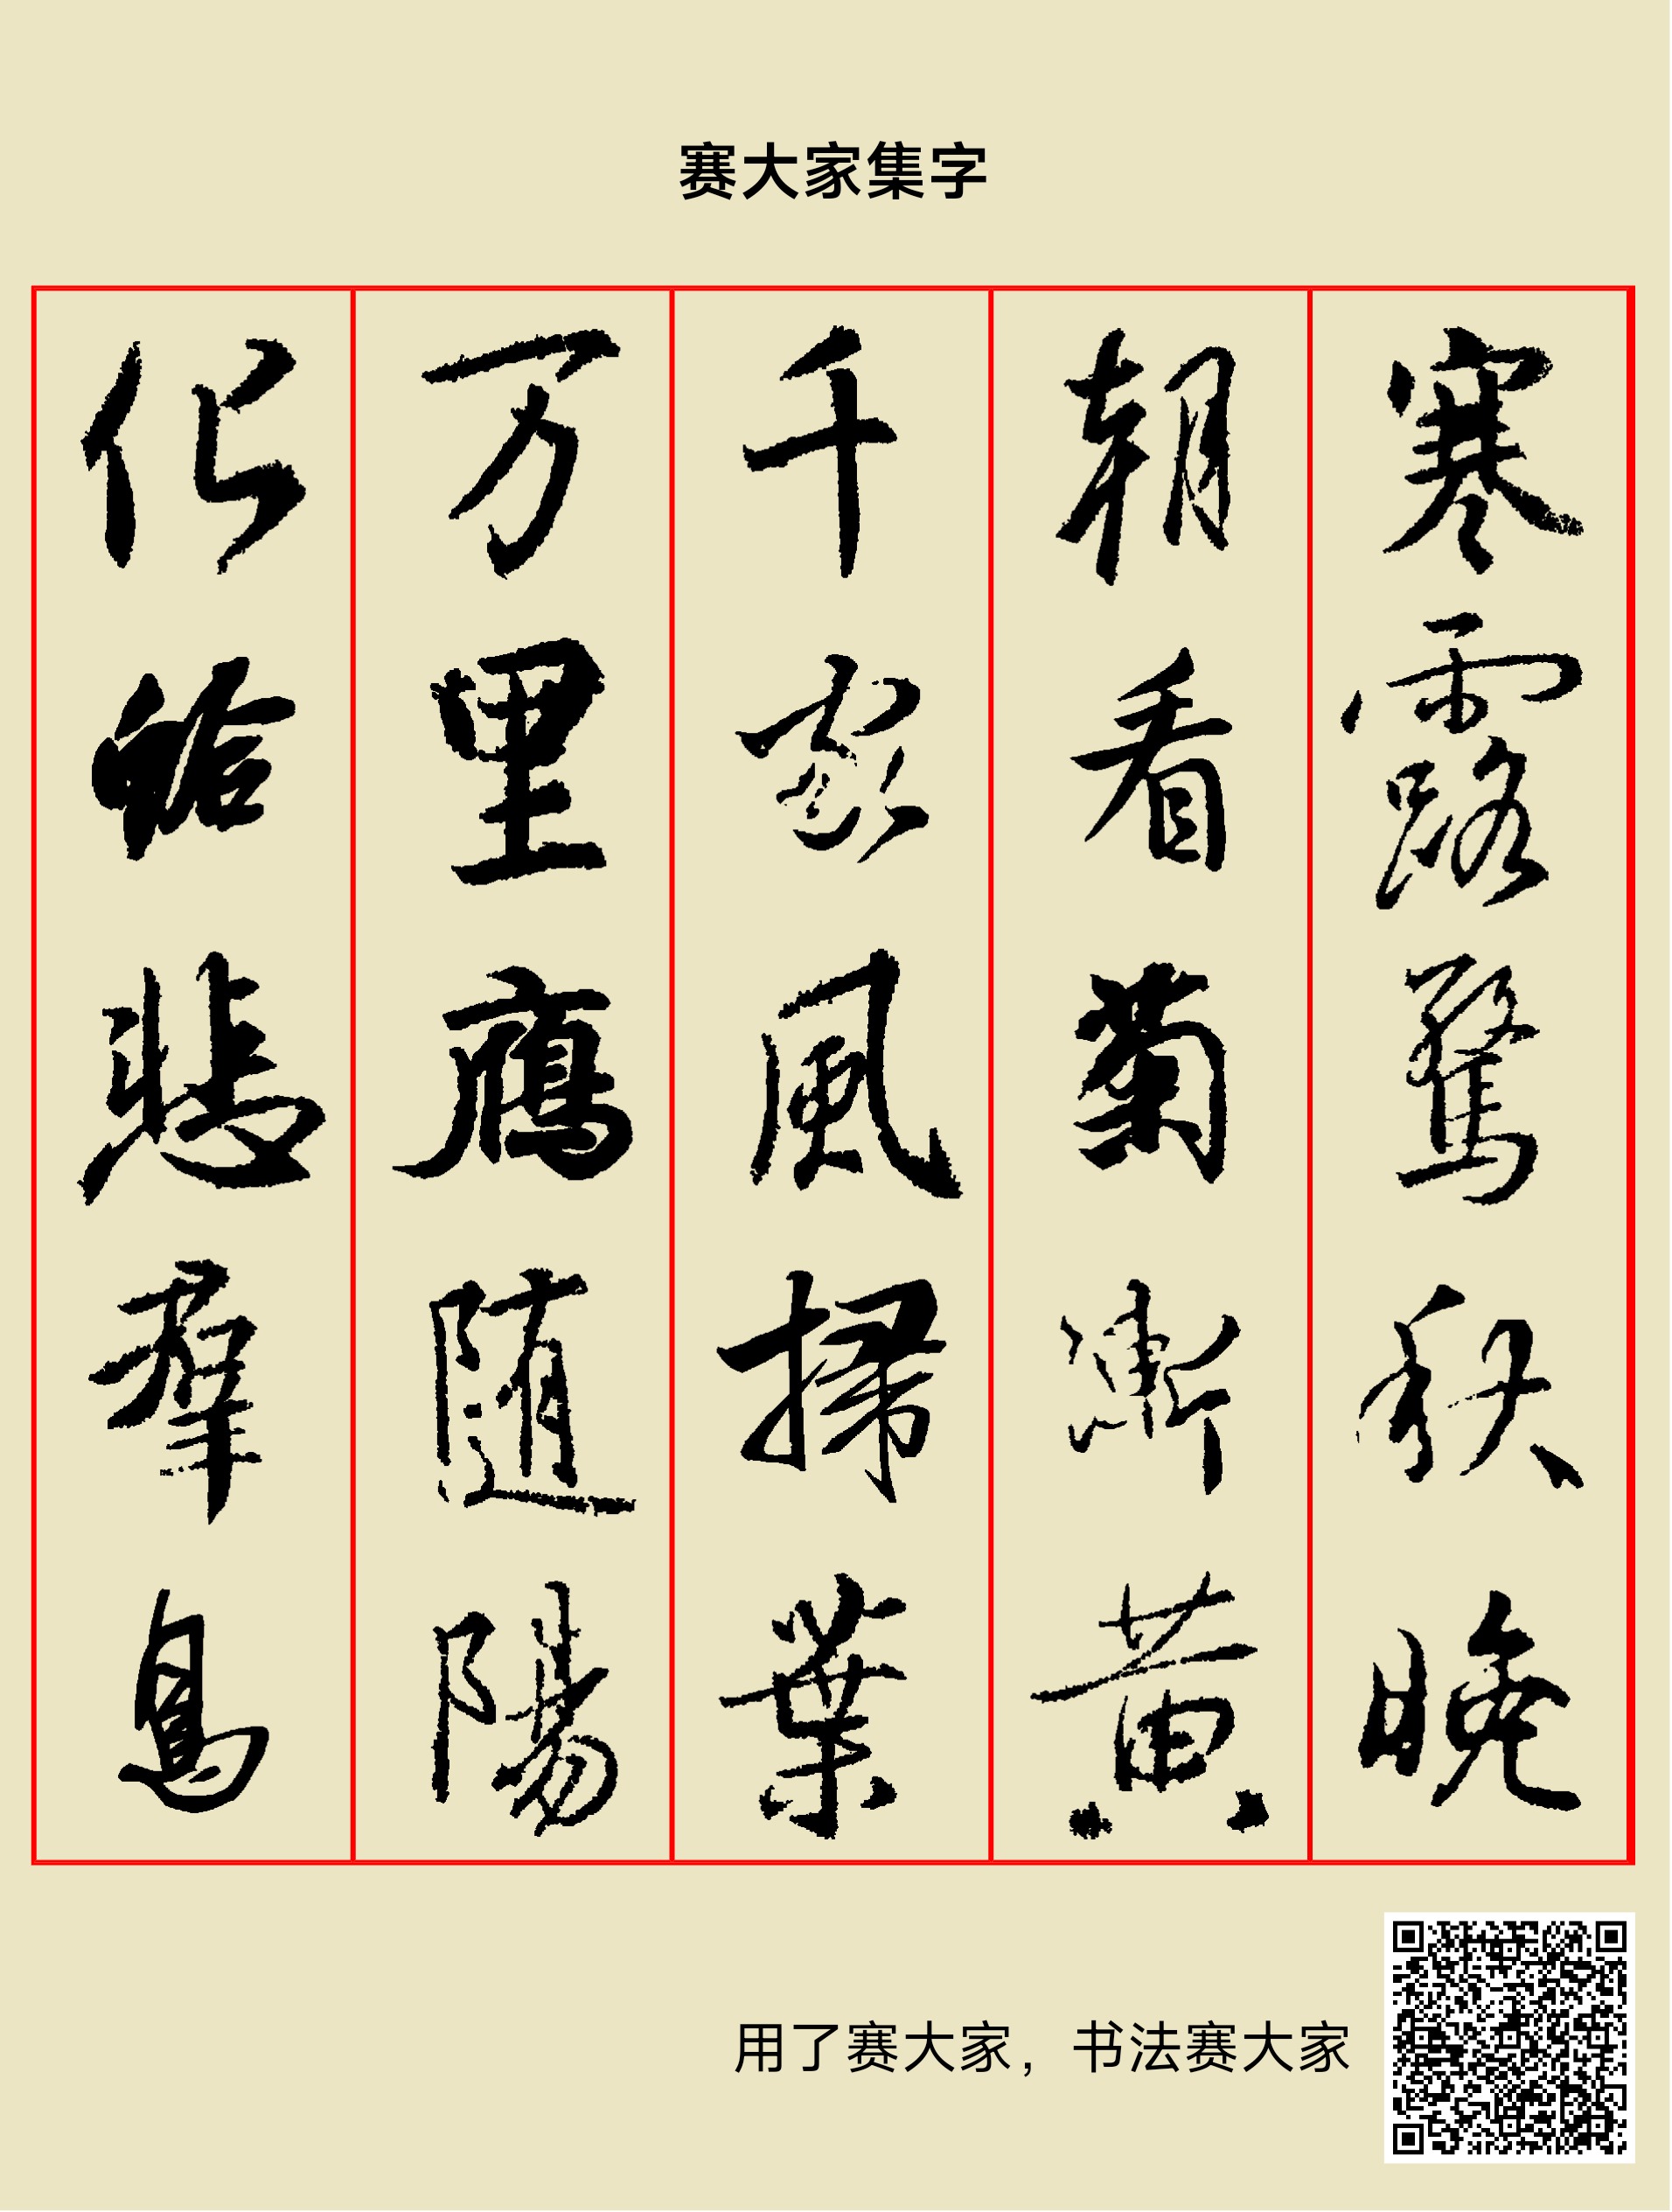 赛大家集字
寒露驚秋晚
朝看菊漸黄
千家風掃葉
万里鴈随陽
化蛤悲羣鳥
用了赛大家，书法赛大家